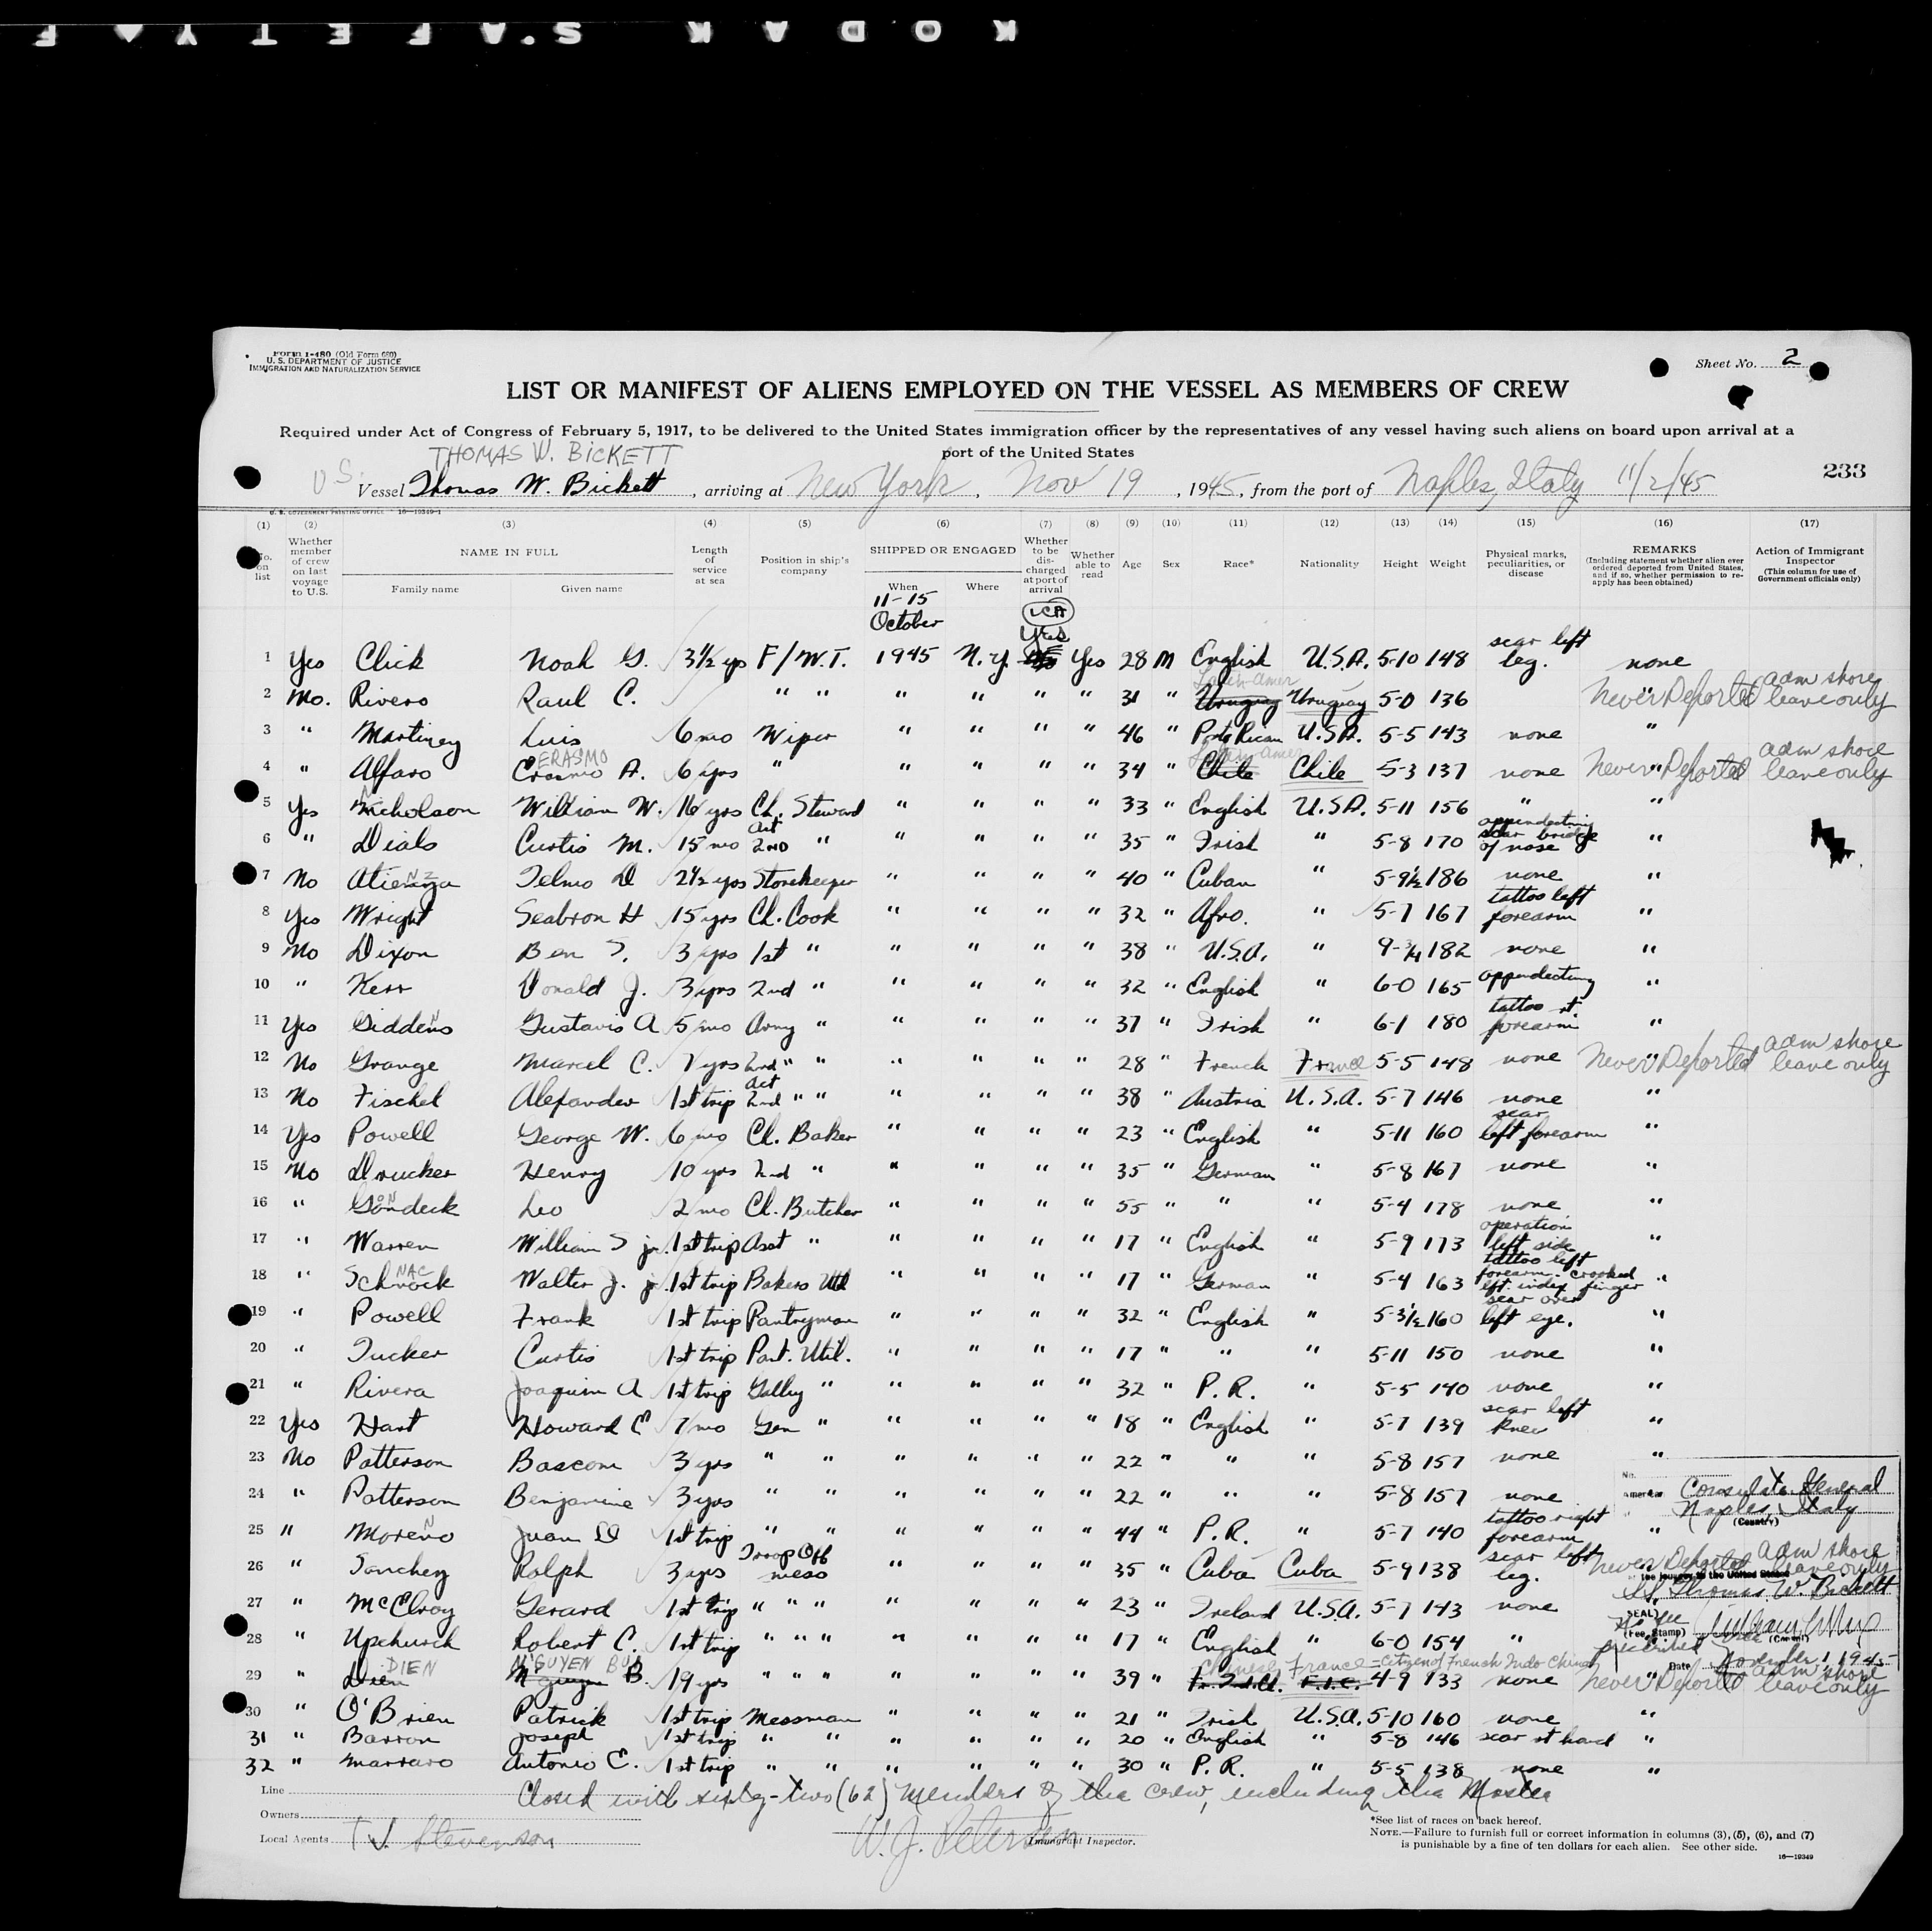 KODAK SAFETY F
Form I-480 (Old Form 680)
U. S. DEPARTMENT OF JUSTICE
IMMIGRATION AND NATURALIZATION SERVICE
Sheet No. 2
LIST OR MANIFEST OF ALIENS EMPLOYED ON THE VESSEL AS MEMBERS OF CREW
Required under Act of Congress of February 5, 1917, to be delivered to the United States immigration officer by the representatives of any vessel having such aliens on board upon arrival at a
port of the United States
THOMAS W. BICKETT
U S. Vessel Thomas W. Bickett, arriving at New York, Nov 19, 1945, from the port of Naples, Italy 11/2/45
233
U. S. GOVERNMENT PRINTING OFFICE 16—19349-1
(1) (2) (3) (4) (5) (6) (7) (8) (9) (10) (11) (12) (13) (14) (15) (16) (17)
No. on list
Whether member of crew on last voyage to U.S.
NAME IN FULL
Family name Given name
Length of service at sea
Position in ship's company
SHIPPED OR ENGAGED
When Where
Whether to be discharged at port of arrival
Whether able to read
Age Sex Race* Nationality Height Weight
Physical marks, peculiarities, or disease
REMARKS
(Including statement whether alien ever ordered deported from United States, and if so, whether permission to reapply has been obtained)
Action of Immigrant Inspector
(This column for use of Government officials only)
11-15
October
Yes
1 Yes Click Noah G. 3½ yrs F/W.T. 1945 N.Y. Yes 28 M English U.S.A. 5-10 148 scar left leg. none
2 No. Rivero Raul C. " " " " " " 31 " Uruguay Latin-Amer Uruguay 5-0 136 " Never Deported adm shore leave only
3 " Martinez Luis 6 mo Wiper " " " " 46 " Porto Rican U.S.A. 5-5 143 none "
4 " Alfaro Erasmo A. ERASMO 6 yrs " " " " " 34 " Chile Latin Amer Chile 5-3 137 none " Never Deported adm shore leave only
5 Yes Nicholson William W. 16 yrs Ch. Steward " " " " 33 " English U.S.A. 5-11 156 " "
6 " Dials Curtis M. 15 mo Act 2ND " " " " " 35 " Irish " 5-8 170 appendectomy scar bridge of nose "
7 No Atienza NZ Telmo D 2½ yrs Storekeeper " " " " 40 " Cuban " 5-9½ 186 none "
8 Yes Wright Seabron H 15 yrs Ch. Cook " " " " 32 " Afro. " 5-7 167 tattoo left forearm "
9 No Dixon Ben S. 3 yrs 1st " " " " " 38 " U.S.A. " 9-¾ 182 none "
10 " Kerr Donald J. 3 yrs 2nd " " " " " 32 " English " 6-0 165 appendectomy "
11 Yes Giddens N Gustavis A 5 mo Army " " " " " 37 " Irish " 6-1 180 tattoo rt. forearm "
12 No Grange Marcel C. 7 yrs 2nd " " " " " " 28 " French France 5-5 148 none " Never Deported adm shore leave only
13 No Fischel Alexander 1st trip Act 2nd " " " " " " 38 " Austria U.S.A. 5-7 146 none "
14 Yes Powell George W. 6 mo Ch. Baker " " " " 23 " English " 5-11 160 scar left forearm "
15 No Drucker Henry 10 yrs 2nd " " " " " 35 " German " 5-8 167 none "
16 " Gondeck ON Leo 2 mo Ch. Butcher " " " " 55 " " " 5-4 178 none "
17 " Warren William S jr. 1st trip Asst " " " " " 17 " English " 5-9 173 operation left side "
18 " Schnock NAC Walter J. jr. 1st trip Bakers Util " " " " 17 " German " 5-4 163 tattoo left forearm. crooked left. index finger "
19 " Powell Frank 1st trip Pantryman " " " " 32 " English " 5-3½ 160 scar over left eye. "
20 " Tucker Curtis 1st trip Pant. Util. " " " " 17 " " " 5-11 150 none "
21 " Rivera Joaquin A 1st trip Galley " " " " " 32 " P.R. " 5-5 140 none "
22 Yes Hart Howard E 7 mo Gen " " " " " 18 " English " 5-7 139 scar left knee "
23 No Patterson Bascom 3 yrs " " " " " " 22 " " " 5-8 157 none "
24 " Patterson Benjamine 3 yrs " " " " " " 22 " " " 5-8 157 none
25 " Moreno N Juan D 1st trip " " " " " " 44 " P.R. " 5-7 140 tattoo right forearm "
26 " Sanchez Ralph 3 yrs Troop Off mess " " " " 35 " Cuba Cuba 5-9 138 scar left leg. " Never Deported adm shore leave only
27 " McElroy Gerard 1st trip " " " " " " " 23 " Ireland U.S.A. 5-7 143 none
28 " Upchurch Robert C. 1st trip " " " " " " " 17 " English " 6-0 154 "
29 " Dien DIEN Nguyen B. N'GUYEN BUI 19 yrs " " " " " " " 39 " Fr. Ind. Ch. Chinese F.I.C. France - Citizen of French Indo China 4-9 133 none " Never Deported adm shore leave only
30 " O'Brien Patrick 1st trip Messman " " " " 21 " Irish U.S.A. 5-10 160 none "
31 " Barron Joseph 1st trip " " " " " " 20 " English " 5-8 146 scar rt hand "
32 " Marraro Antonio E. 1st trip " " " " " " 30 " P.R. " 5-5 138 none "
No.
American Consulate General
Naples, Italy
(Country)
the journey to the United States
SS Thomas W. Bickett
(SEAL)
No fee
(Fee Stamp)
prescribed
Vice (Consul)
Date November 1, 1945
Line
Closed with sixty-two (62) members of the crew, including the Master
Owners
Local Agents T J. Stevenson
W. J. Petersen
Immigrant Inspector.
*See list of races on back hereof.
NOTE.—Failure to furnish full or correct information in columns (3), (5), (6), and (7)
is punishable by a fine of ten dollars for each alien. See other side.
16—19349